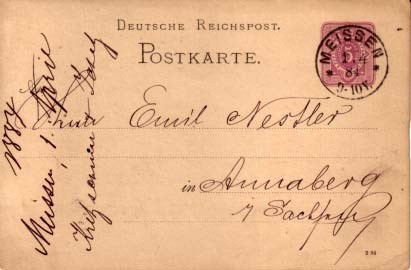 DEUTSCHE REICHSPOST.
POSTKARTE.
MEISSEN
1 4
84
9-10V.
Firma Emil Nestler
in Annaberg
i/ Sachsen
Meissen, 1. April
1884